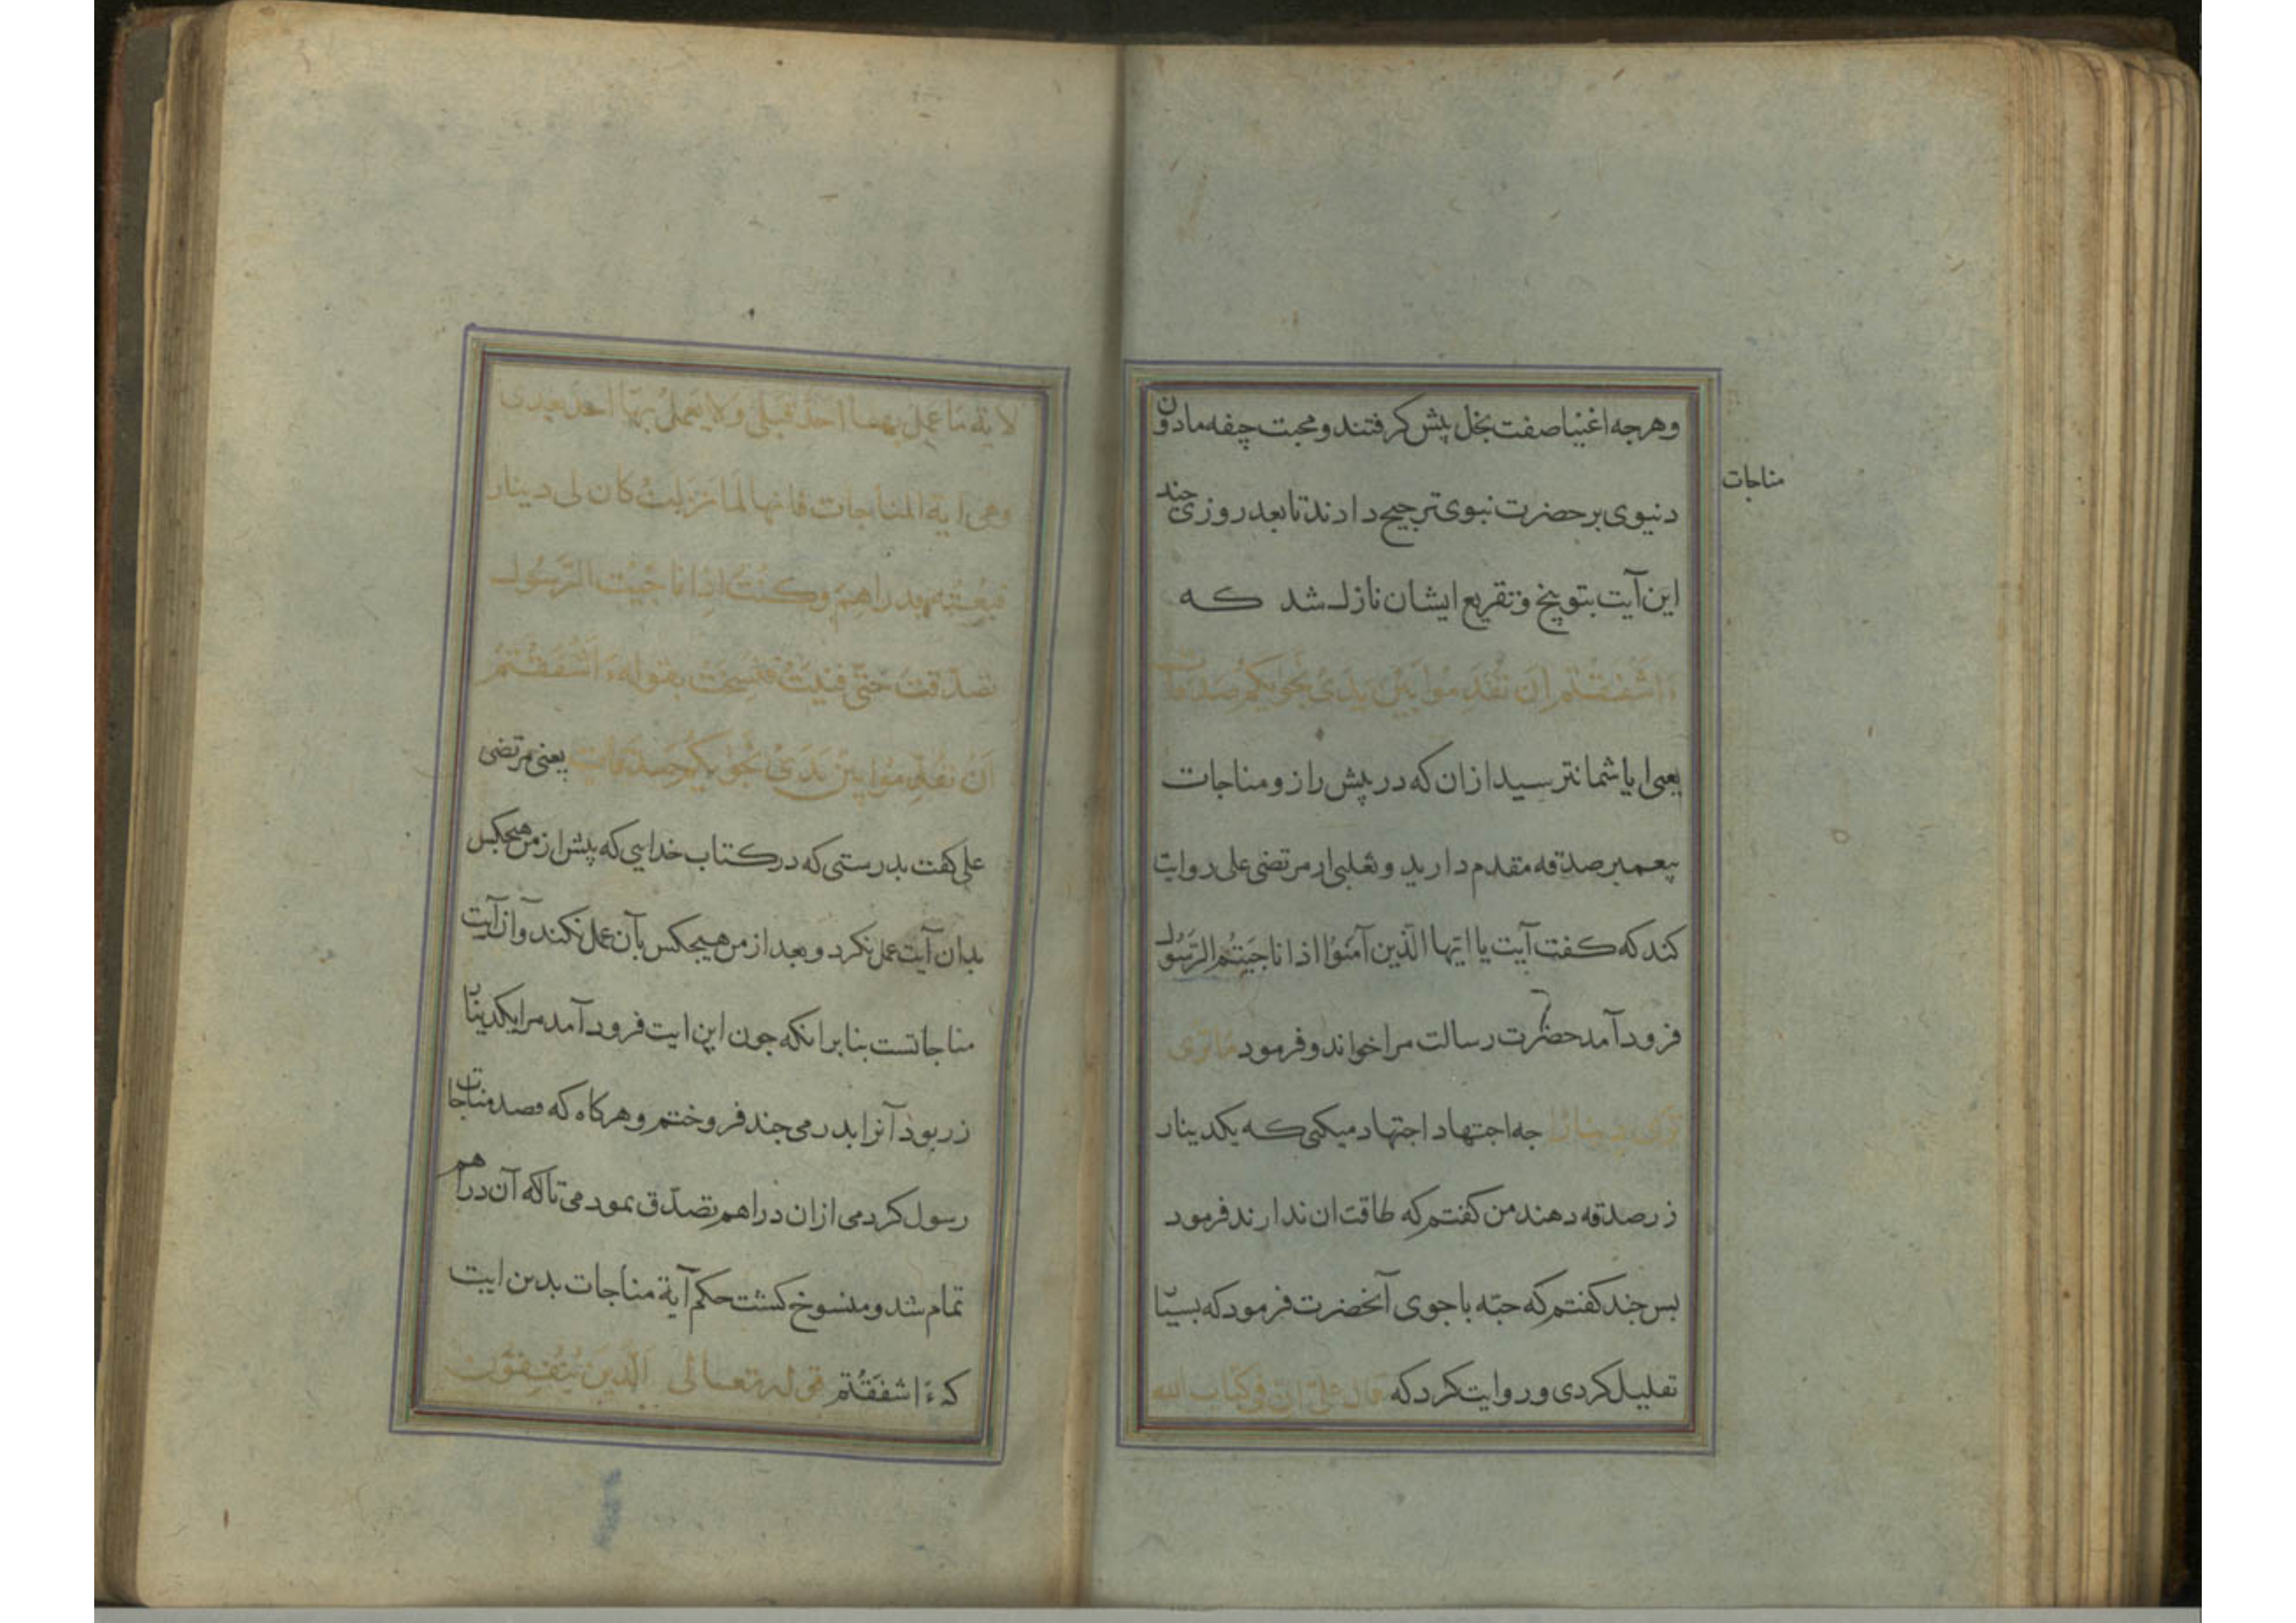 وهرجه اغنیا صفت بخل پیش کرفتند و محبت جیفه مادون
مناجات
دنیوی بر حضرت نبوی ترجیح دادند تا بعد روزی جند
این آیت بتوبیخ و تقریع ایشان نازل شد که
ءَاَشْفَقْتُم اَن تُقَدِّمُوا بَیْنَ یَدَیْ نَجْوٰیکُمْ صَدَقَات
یعنی ایا شما نترسیدازان که در پیش راز و مناجات
پیغمبر صدقه مقدم دارید و ثعلبی از مرتضی علی روایت
کند که کفت آیت یا ایّها الّذین آمَنُوا اذا ناجَیتُم الرَّسُول
فرود آمد حضرت رسالت مرا خواند و فرمود ما تری
تری دینارا جه اجتهاد اجتهاد میکنی که یکدینار
زر صدقه دهند من کفتم که طاقت ان ندارند فرمود
بس جند کفتم که حبّه یا جوی آنحضرت فرمود که بسیار
تقلیل کردی و روایت کرد که قال علیّ انّ فی کتاب الله
لایة ما عمل بها احدٌ قبلی ولا یعمل بها احدٌ بعدی
وهی ایة المناجات فانها لما نزلت کان لی دینار
فبعته بدراهم وکنت اذا ناجیت الرَّسُول
تصدّقت حتّی فنیت فنسخت بقوله ءَاَشْفَقْتُمْ
اَن تُقَدِّمُوا بَیْنَ یَدَیْ نَجْوٰیکُمْ صَدَقَات یعنی مرتضی
علی کفت بدرستی که در کتاب خدایی که پیش از من هیجکس
بدان آیت عمل نکرد و بعد از من هیجکس بآن عمل نکند و آن آیت
مناجاتست بنا برانکه جون این ایت فرود آمد مرا یکدینار
زر بود آنرا بدرمی جند فروختم و هرکاه که قصد مناجات
رسول کردمی ازان دراهم تصدّق نمودمی تا که آن دراهم
تمام شد و منسوخ کشت حکم آیة مناجات بدین ایت
که ءَاشفَقْتم قوله تعالی الَّذینَ یُنْفِقُون